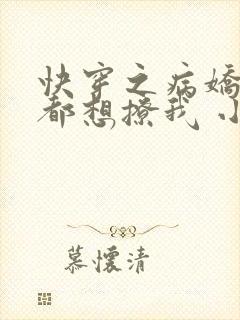 快穿之病嬌
都想撩我 小
慕懷清